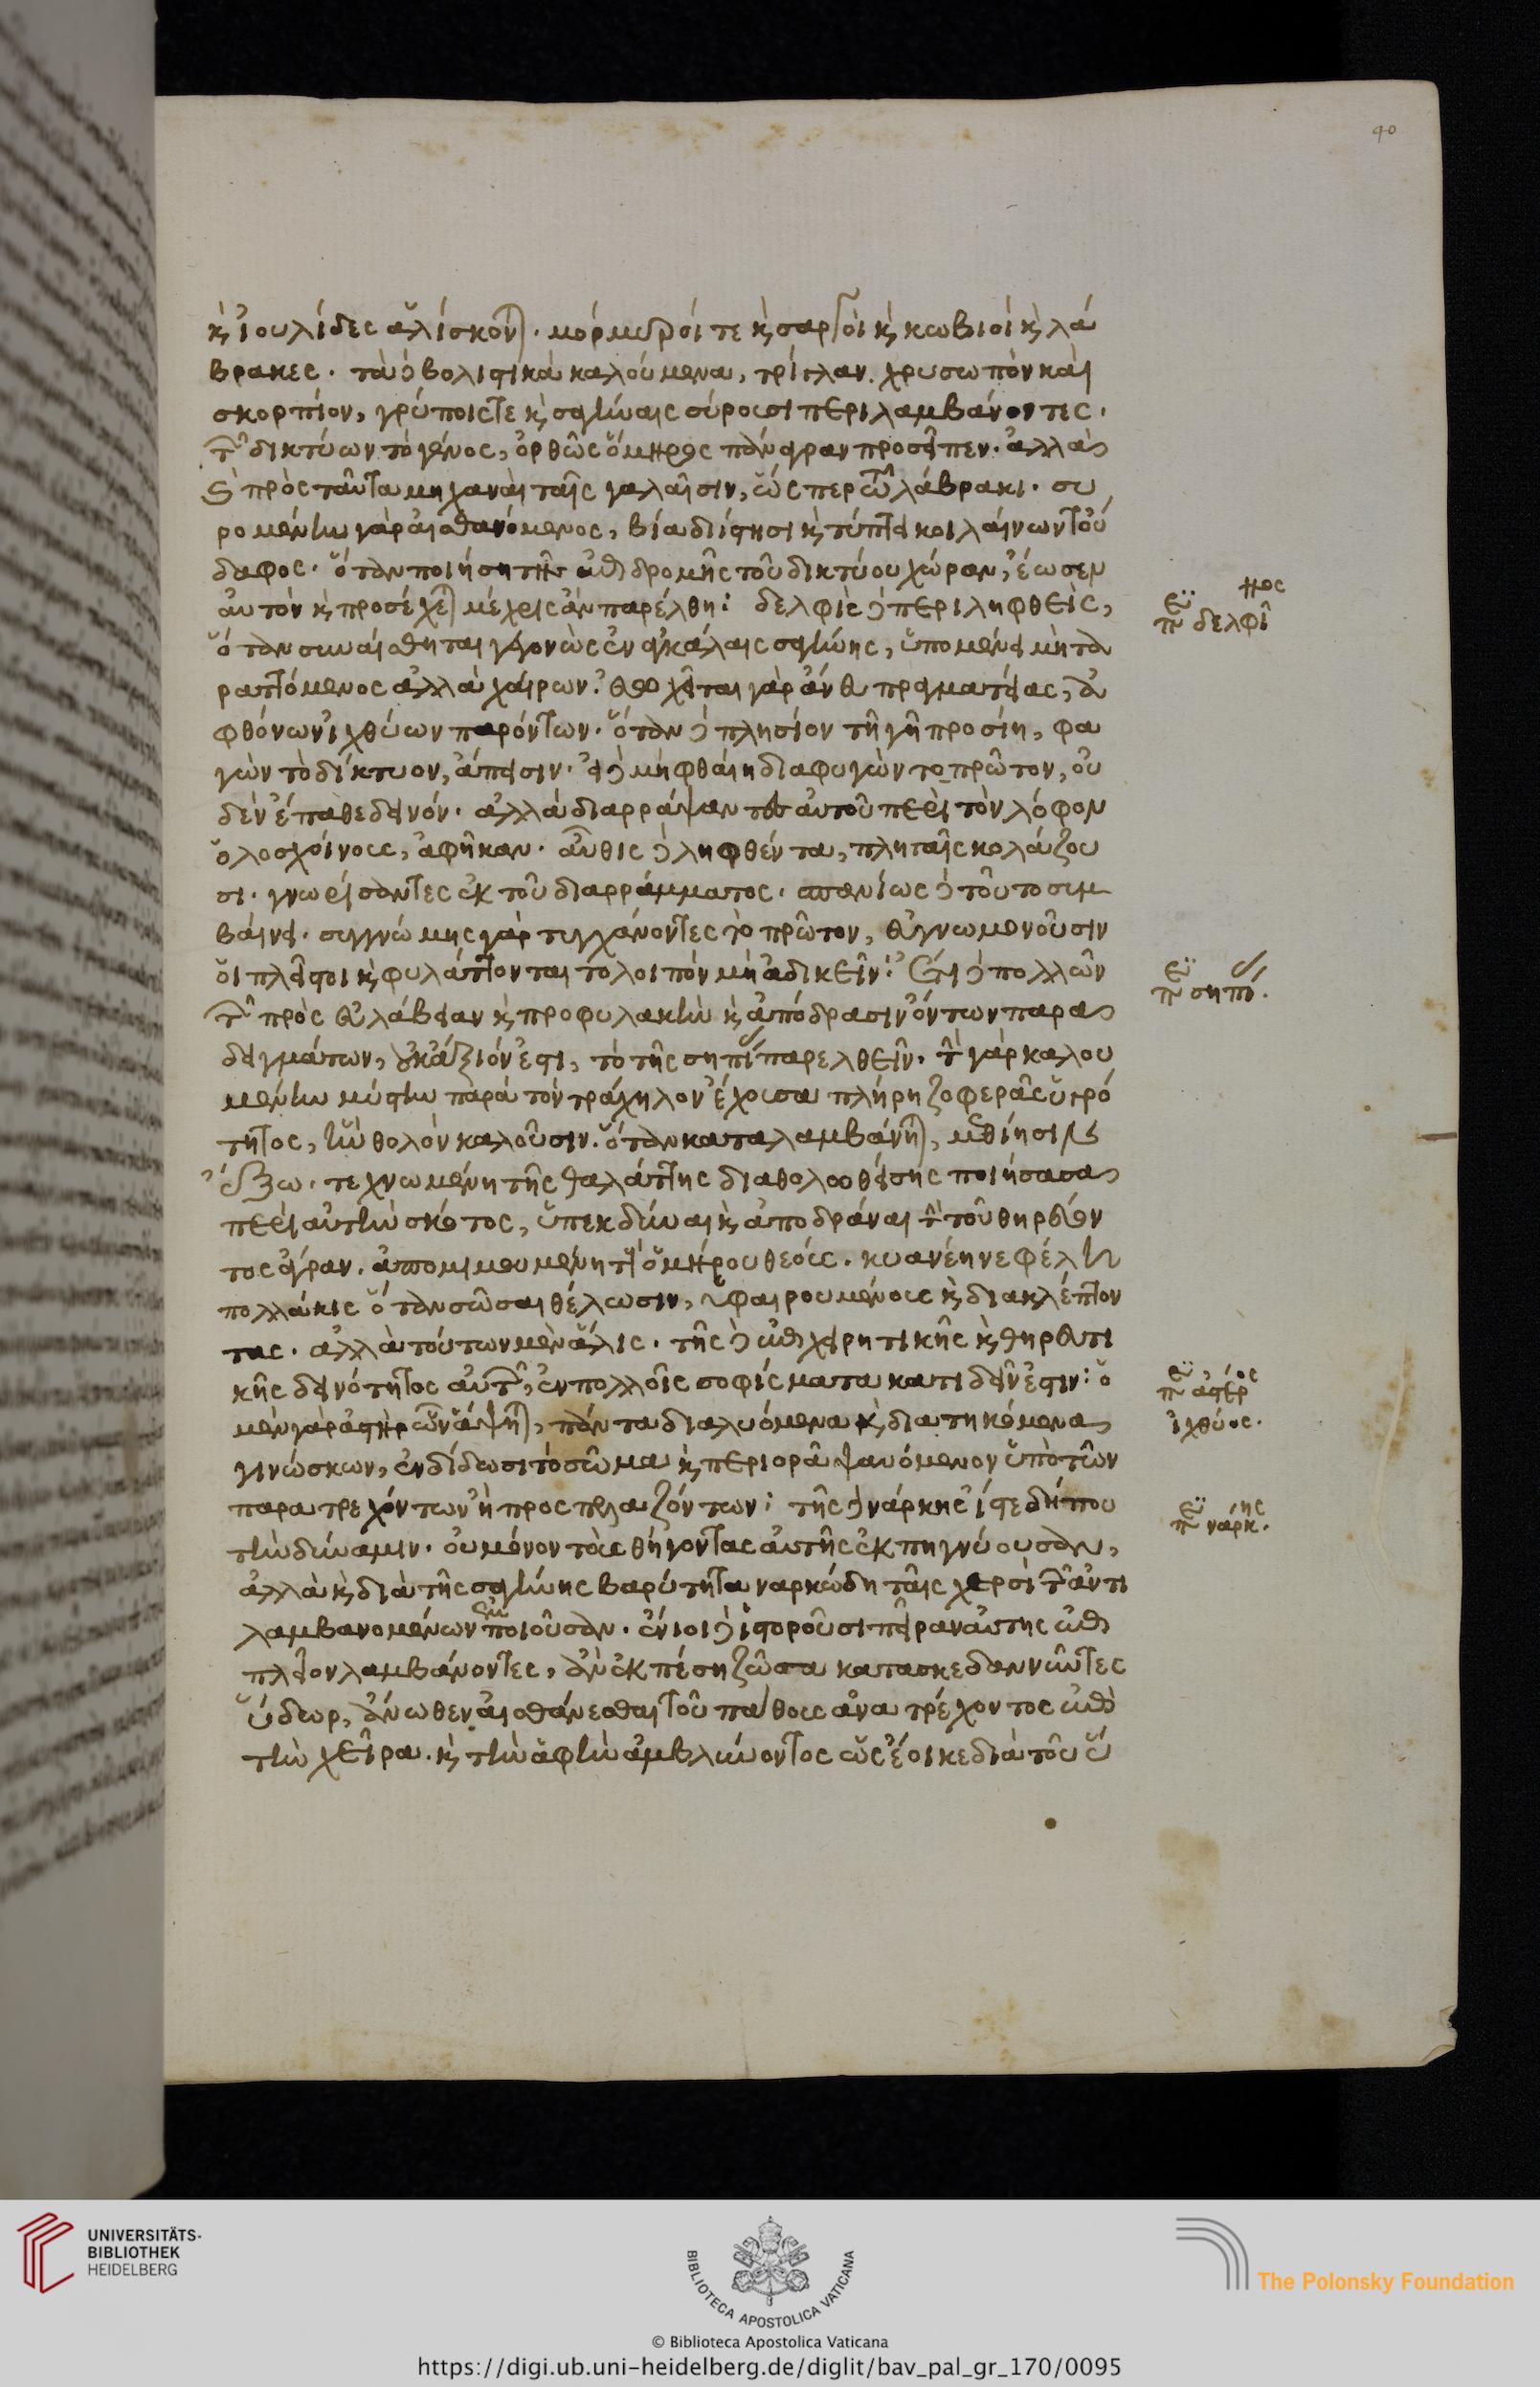 καὶ ἰουλίδες ἁλίσκονται. μόρμυροί τε καὶ σαργοὶ καὶ κωβιοὶ καὶ λά
βρακες. τὰ δὲ βολιστικὰ καλούμενα, τρίγλαν. χρυσωπὸν καὶ
σκορπίον, γρύποις τε καὶ σαγήναις σύρουσι περιλαμβάνοντες.
τῶν δικτύων τὸ γένος, ὀρθῶς ὅμηρος πάναγραν προσεῖπεν. ἀλλὰ
καὶ πρὸς ταῦτα μηχαναὶ ταῖς γαλαῖσιν, ὥσπερ τῶ λάβρακι. συ
ρομένην γὰρ αἰσθανόμενος, βία διίστησι καὶ τύπτει κοιλαίνων τοὔ
δαφος. ὅταν ποιήση τῆς ἐπιδρομῆς τοῦ δικτύου χώραν, ἔωσεν
αὐτὸν καὶ προσέχεται μέχρις ἂν παρέλθη: δελφὶς δὲ περιληφθεὶς,
ὅταν συναίσθηται γεγονὼς ἐν ἀγκάλαις σαγήνης, ὑπομένει μὴ τα
ραττόμενος ἀλλὰ χαίρων. εὐωχεῖται γὰρ ἄνευ πραγματείας, ἀ
φθόνων ἰχθύων παρόντων. ὅταν δὲ πλησίον τῆ γῆ προσίη, φα
γὼν τὸ δίκτυον, ἄπεισιν. εἰ δὲ μὴ φθαίη διαφυγὼν τὸ πρῶτον, οὐ
δὲν ἔπαθε δεινόν. ἀλλὰ διαρράψαντες αὐτοῦ περὶ τὸν λόφον
ὁλοσχοίνους, ἀφῆκαν. αὖθις δὲ ληφθέντα, πληγαῖς κολάζου
σι. γνωρίσαντες ἐκ τοῦ διαρράμματος. σπανίως δὲ τοῦτο συμ
βαίνει. συγγνώμης γὰρ τυγχάνοντες τὸ πρῶτον, εὐγνωμονοῦσιν
οἱ πλεῖστοι καὶ φυλάττονται τὸ λοιπὸν μὴ ἀδικεῖν: Ἔτι δὲ πολλῶν
τῶν πρὸς εὐλάβειαν καὶ προφυλακὴν καὶ ἀπόδρασιν ὄντων παρα
δειγμάτων, οὐκ ἄξιόν ἐστι, τὸ τῆς σηπίας παρελθεῖν. τὴν γὰρ καλου
μένην μύστιν παρὰ τὸν τράχηλον ἔχουσα πλήρη ζοφερᾶς ὑγρό
τητος, ἣν θολὸν καλοῦσιν. ὅταν καταλαμβάνηται, μεθίησιν
ἔξω. τεχνωμένη τῆς θαλάττης διαθολωθείσης ποιήσασα
περὶ αὑτὴν σκότος, ὑπεκδῦναι καὶ ἀποδράναι τὴν τοῦ θηρεύον
τος ἄγραν. ἀπομιμουμένη τοὺς ὁμήρου θεούς. κυανέη νεφέλη
πολλάκις ὅταν σῶσαι θέλωσιν, ὑφαιρουμένους καὶ διακλέπτον
τας. ἀλλὰ τούτων μὲν ἅλις. τῆς δὲ ἐπιχειρητικῆς καὶ θηρευτι
κῆς δεινότητος αὐτῶν, ἐν πολλοῖς σοφίσματα κατιδεῖν ἔστιν: ὁ
μὲν γὰρ ἀστὴρ ὧν ἅψηται, πάντα διαλυόμενα καὶ διατηκόμενα
γινώσκων, ἐνδίδωσι τὸ σῶμα καὶ περιορᾶ ψαυόμενον ὑπὸ τῶν
παρατρεχόντων ἢ προσπελαζόντων: τῆς δὲ νάρκης ἴστε δήπου
τὴν δύναμιν. οὐ μόνον τοὺς θήγοντας αὐτῆς ἐκπηγνύουσαν,
ἀλλὰ καὶ διὰ τῆς σαγήνης βαρύτητα ναρκώδη ταῖς χερσὶ τῶν ἀντι
λαμβανομένων ἐμποιοῦσαν. ἔνιοι δὲ ἱστοροῦσι πεῖραν αὐτῆς ἐπὶ
πλεῖον λαμβάνοντες, ἂν ἐκπέση ζῶσα κατασκεδαννῦντες
ὕδωρ, ἄνωθεν αἰσθάνεσθαι τοῦ πάθους ἀνατρέχοντος ἐπὶ
τὴν χεῖρα. καὶ τὴν ἁφὴν ἀμβλύνοντος ὡς ἔοικε διὰ τοῦ ὕ
40
περὶ δελφῖνος
περὶ σηπίας.
περὶ ἀστέρος
ἰχθύος.
περὶ νάρκης.
UNIVERSITÄTS-
BIBLIOTHEK
HEIDELBERG
BIBLIOTECA APOSTOLICA VATICANA
The Polonsky Foundation
© Biblioteca Apostolica Vaticana
https://digi.ub.uni-heidelberg.de/diglit/bav_pal_gr_170/0095